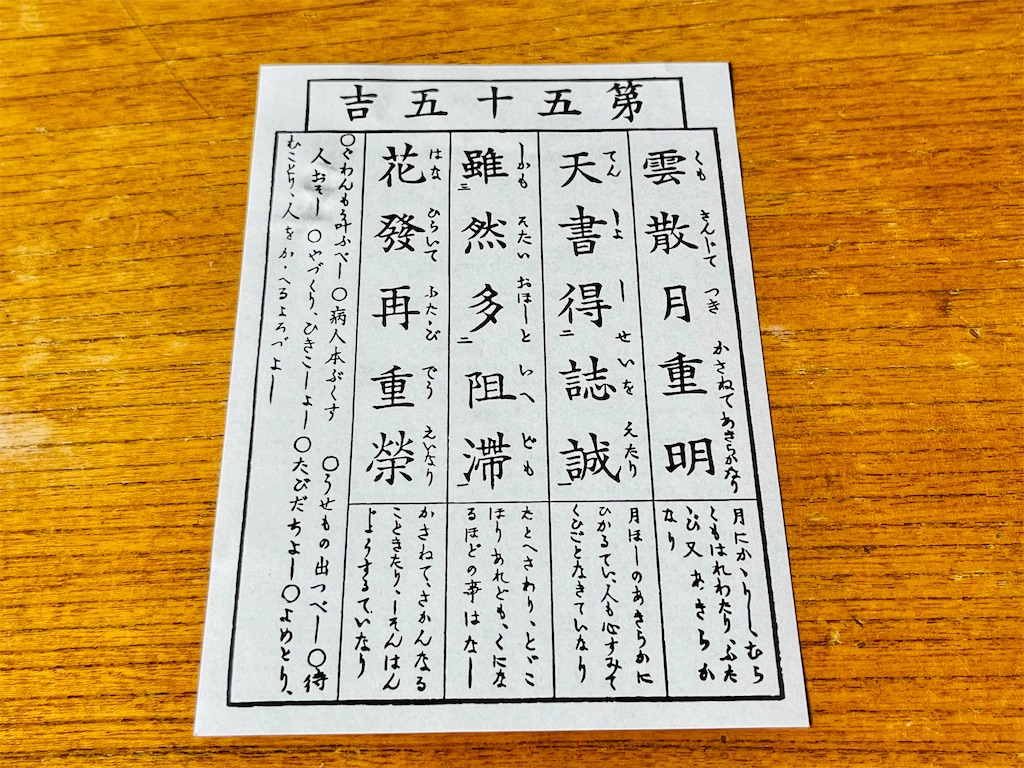 第五十五吉
くも さんじて つき かさねて あきらかなり
雲散月重明
月にかゝりし、むら
くもはれわたり、ふた
ゝび又あきらか
なり
てん しよ し せいを えたり
天書得二誌誠一
月ほしのあきらかに
ひかるてい、人も心すみて
くひごとなきていなり
しかも そたい おほしと いへ ども
雖三然多二阻滯一
たとへさわり、とゞこ
ほりあれども、くにな
るほどの事はなし
はな ひらいて ふたゝび でう えいなり
花發再重榮
かさねて、さかんなる
こときたり、しそんはん
じようするていなり
○ぐわんもう叶ふべし○病人本ぶくす ○うせもの出つべし○待
人おそし ○やづくり、ひきこしよし○たびだちよし○よめとり、
むことり、人をかゝへるよろづよし